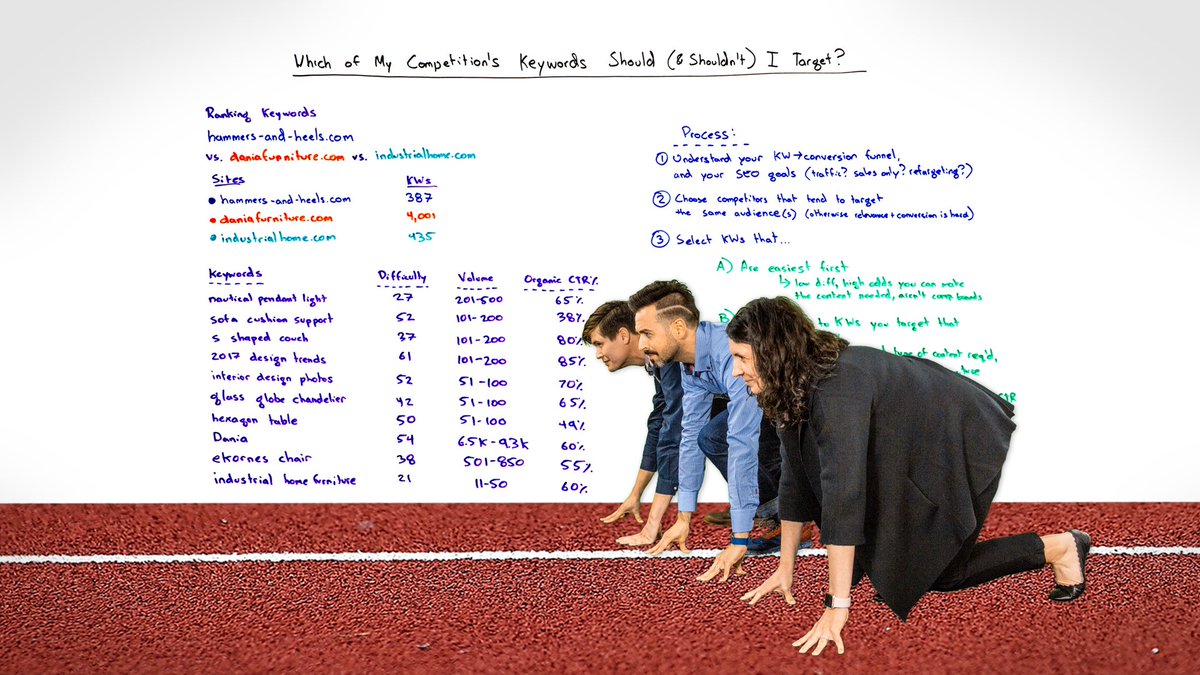 Which of My Competition's Keywords Should (& Shouldn't) I Target?
Ranking Keywords
hammers-and-heels.com
vs. daniafurniture.com vs. industrialhome.com
Sites KWs
hammers-and-heels.com 387
daniafurniture.com 4,001
industrialhome.com 435
Keywords Difficulty Volume Organic CTR%
nautical pendant light 27 201-500 65%
sofa cushion support 52 101-200 38%
s shaped couch 37 101-200 80%
2017 design trends 61 101-200 85%
interior design photos 52 51-100 70%
glass globe chandelier 42 51-100 65%
hexagon table 50 51-100 49%
Dania 54 6.5K-9.3K 60%
ekornes chair 38 501-850 55%
industrial home furniture 21 11-50 60%
Process:
1 Understand your KW→conversion funnel,
and your SEO goals (traffic? sales only? retargeting?)
2 Choose competitors that tend to target
the same audience(s) (otherwise relevance + conversion is hard)
3 Select KWs that...
A) Are easiest first
↳ low diff, high odds you can make
the content needed, aren't comp brands
B)
to KWs you target that
type of content req'd,
CTR